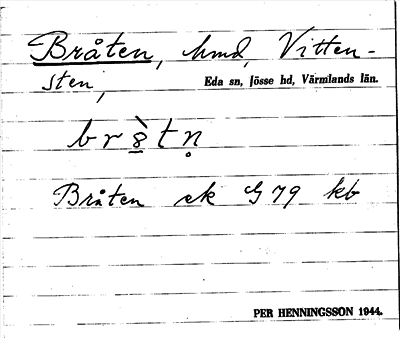 Bråten, hmd, Vitten-
sten, Eda sn, Jösse hd, Värmlands län.
Bråten ek G 79 kb
PER HENNINGSSON 1944.